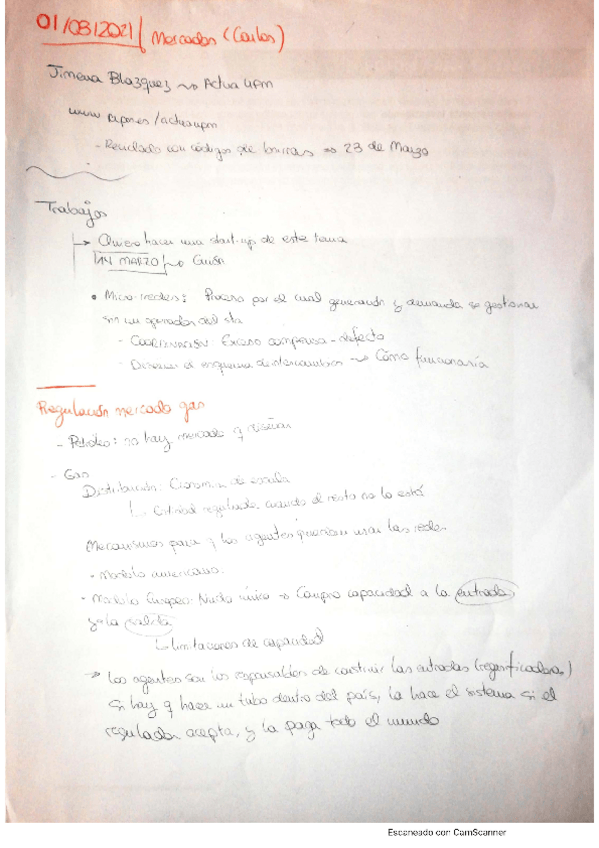 01/03/2021 Mercados (Carlos)
Jimena Blazquez ~> Actua UPM
www upm.es/actuaupm
- Reciclado con códigos de barras => 23 de Marzo
Trabajos
↳ Quiero hacer una start-up de este tema
14 MARZO ~> Guión
• Micro-redes: Proceso por el cual generación y demanda se gestionan
sin un operador del sta
- Coordinación: Exceso compensa - defecto
- Diseñar el esquema de intercambios ~> Cómo funcionaría
Regulación mercado gas
- Petróleo: no hay mercado q diseñar
- Gas
Distribución: Economía de escala
↳ Entidad regulada cuando el resto no lo está
Mecanismos para q los agentes puedan usar las redes
- Modelo americano:
- Modelo Europeo: Nudo único ~> Compro capacidad a la entrada
y a la salida
↳ limitaciones de capacidad
→ Los agentes son los responsables de construir las entradas (regasificadoras)
Si hay q hacer un tubo dentro del país, la hace el sistema si el
regulador acepta, y la paga todo el mundo
Escaneado con CamScanner